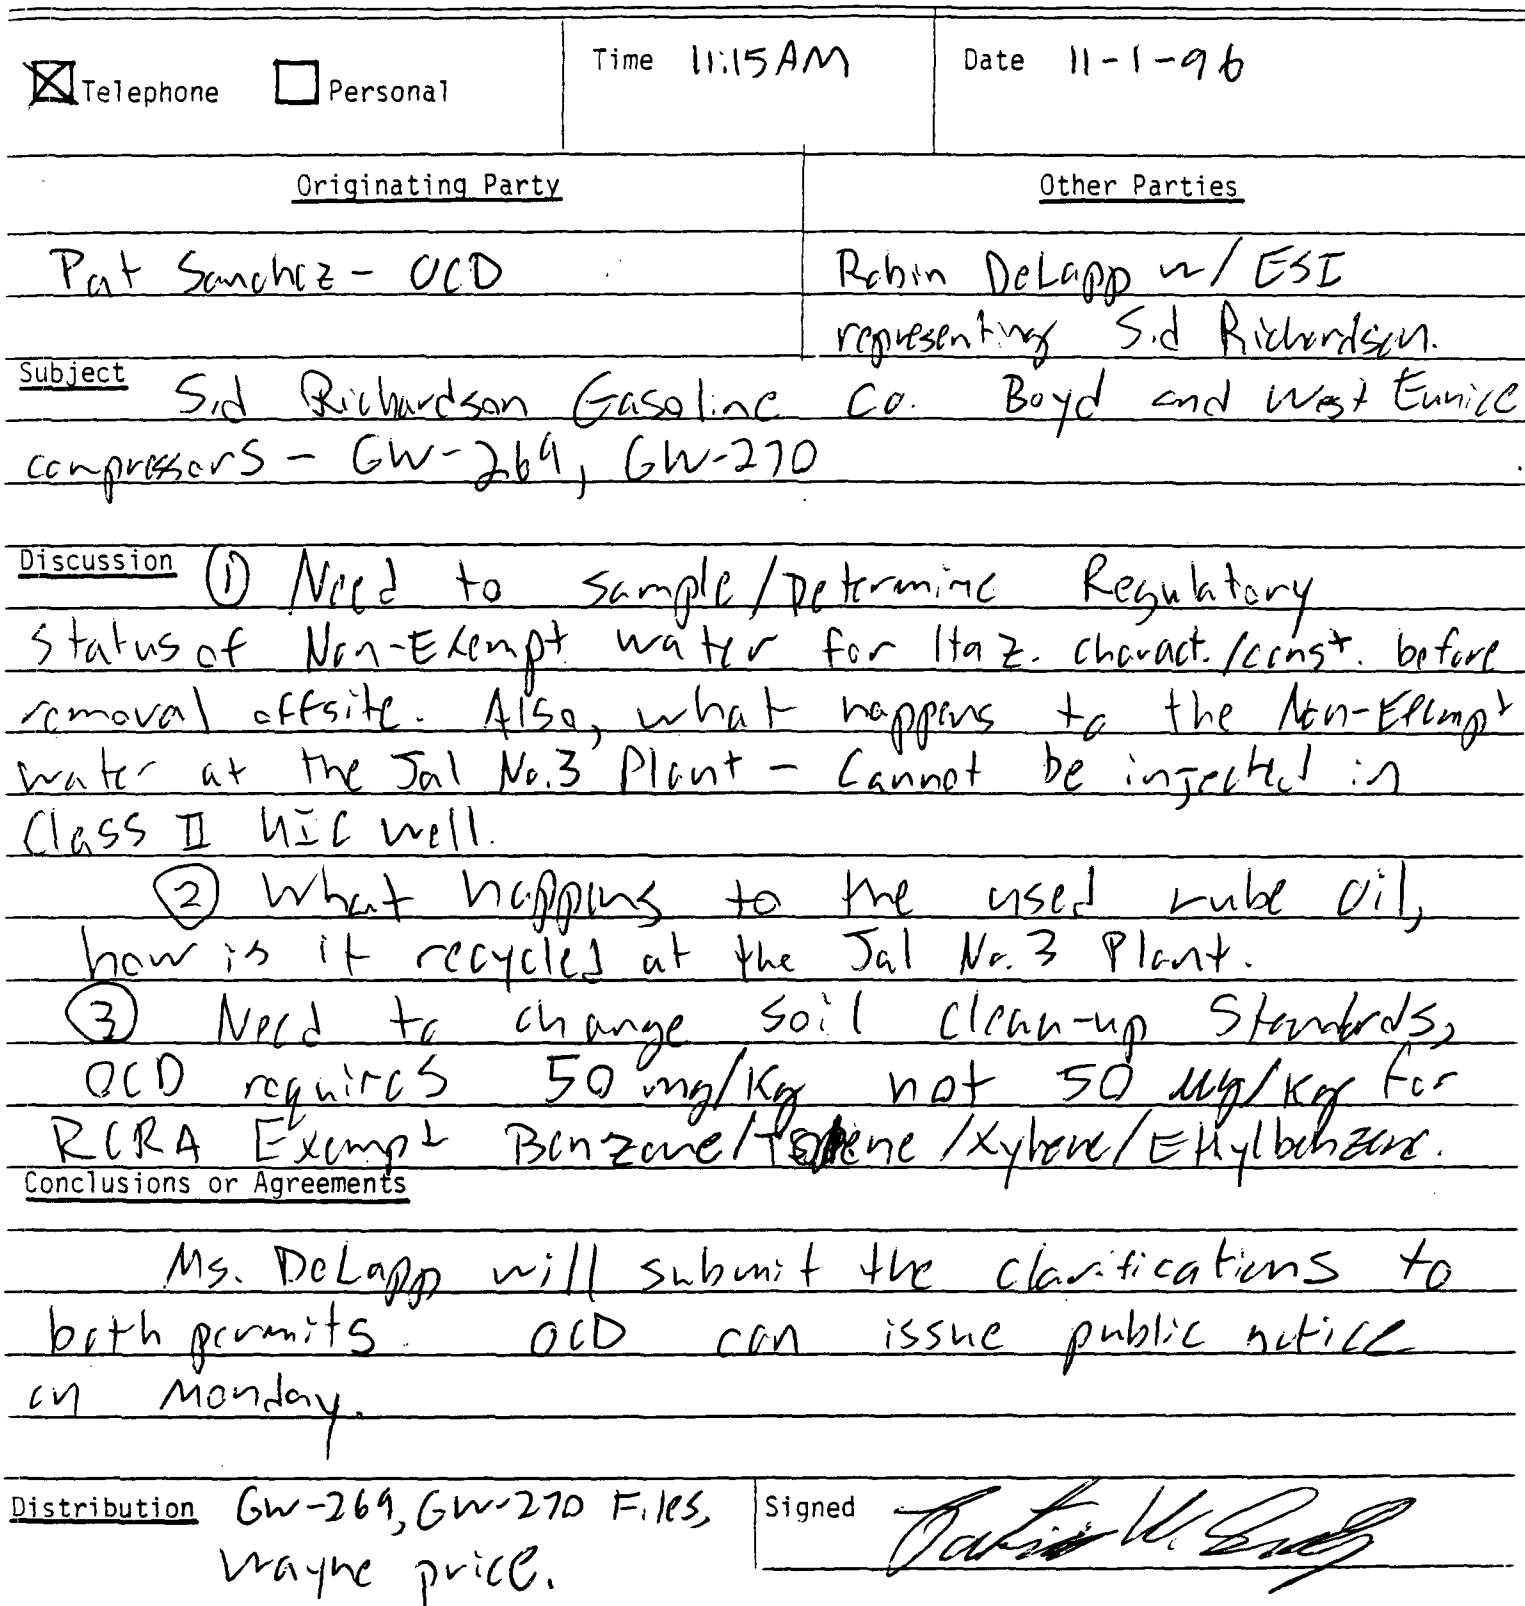 Telephone Personal Time 11:15 AM Date 11-1-96
Originating Party Other Parties
Pat Sanchez - OCD Robin DeLapp w/ ESI
representing Sid Richardson.
Subject Sid Richardson Gasoline Co. Boyd and West Eunice
compressors - GW-269, GW-270
Discussion ① Need to sample/Determine Regulatory
status of Non-Exempt water for Haz. charact./const. before
removal offsite. Also, what happens to the Non-Exempt
water at the Jal No.3 Plant - Cannot be injected in
Class II UIC well.
② What happens to the used lube oil,
how is it recycled at the Jal No. 3 Plant.
③ Need to change soil clean-up Standards,
OCD requires 50 mg/kg not 50 µg/kg for
RCRA Exempt Benzene/ /Xylene/Ethylbenzene.
Conclusions or Agreements
Ms. DeLapp will submit the clarifications to
both permits. OCD can issue public notice
on Monday.
Distribution GW-269, GW-270 Files, Signed
Wayne price.